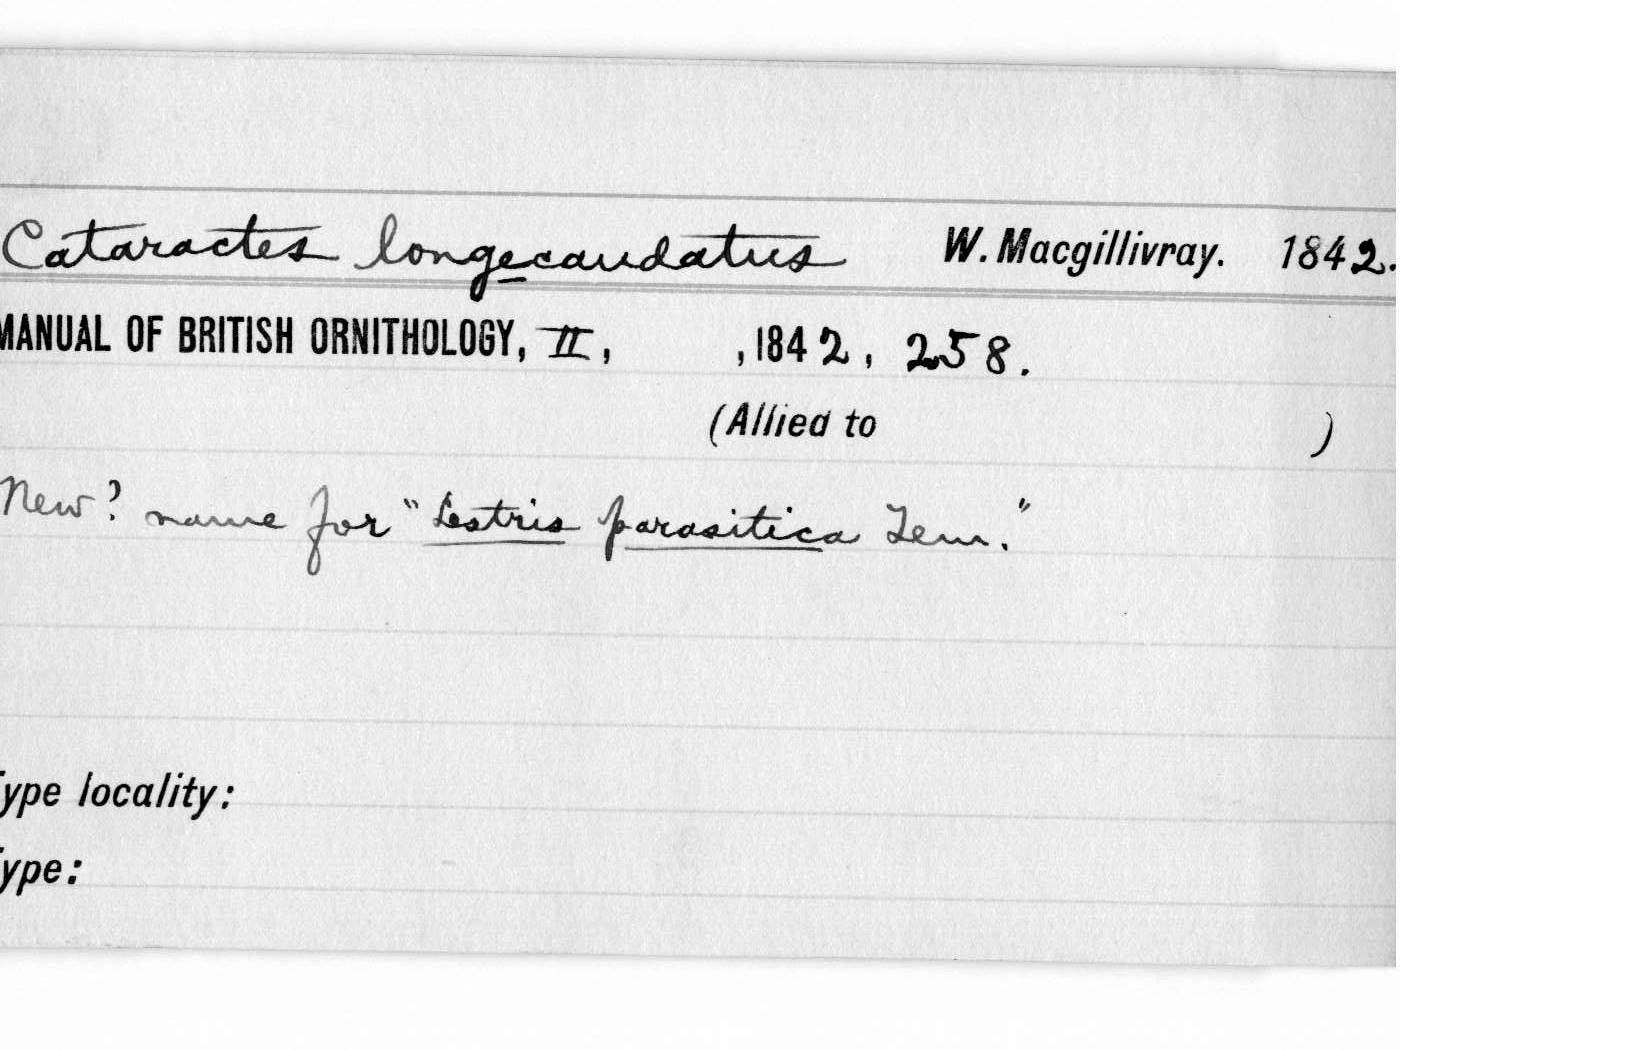 Cataractes longecaudatus W. Macgillivray. 1842.
MANUAL OF BRITISH ORNITHOLOGY, II, , 1842, 258.
(Allied to )
New? name for "Lestris parasitica Tem."
Type locality:
Type: